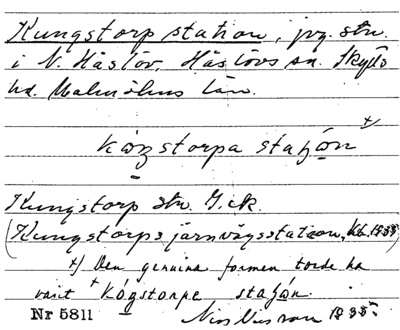 Kungstorp station, jvg. stn.
i N. Håslöv, Håslövs sn. Skytts
hd. Malmöhus län.
+)
kózstorpa staʒón
Kungstorp stn. G.ek.
(Kungstorps järnvägsstation, Kb. 1935)
+) Den genuina formen torde ha
varit + kógstorpe staʒón.
Nr 5811 Nils Nilsson 1935.